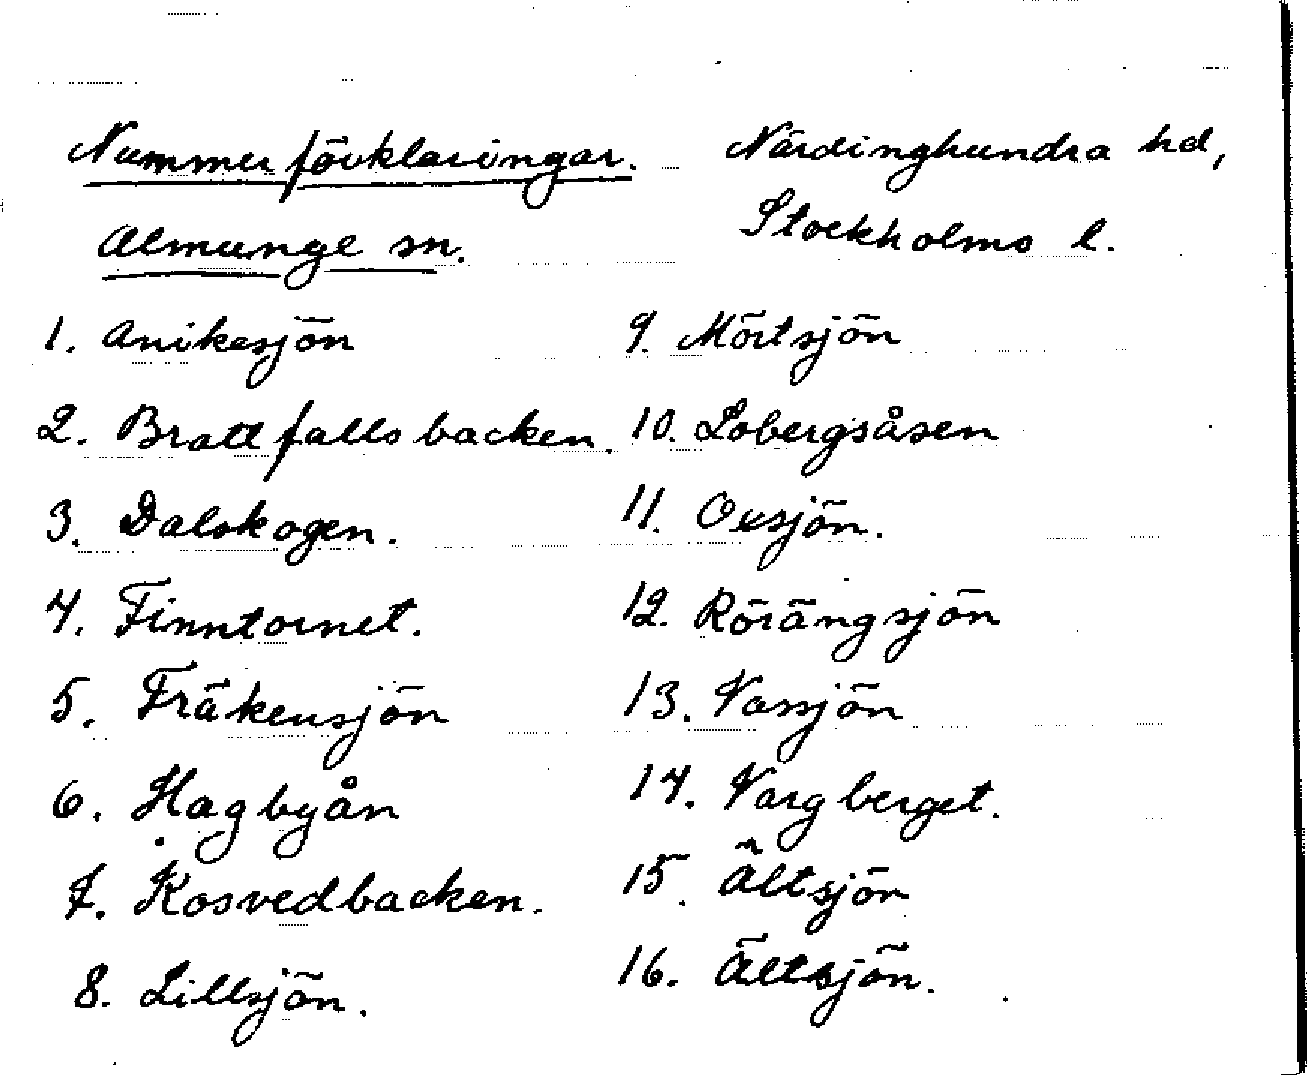 Nummerförklaringar.
Närdinghundra hd,
Almunge sn.
Stockholms l.
1. Anikesjön
2. Brattfallsbacken.
3. Dalskogen.
4. Finntornet.
5. Fräkensjön
6. Hagbyån
7. Kosvedbacken.
8. Lillsjön.
9. Mörtsjön
10. Lobergsåsen
11. Oxsjön.
12. Rörängsjön
13. Vassjön
14. Vargberget.
15. Ältsjön
16. Ältsjön.